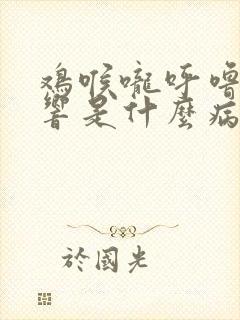 鸡喉嚨呼嚕
響是什麼病
於國光